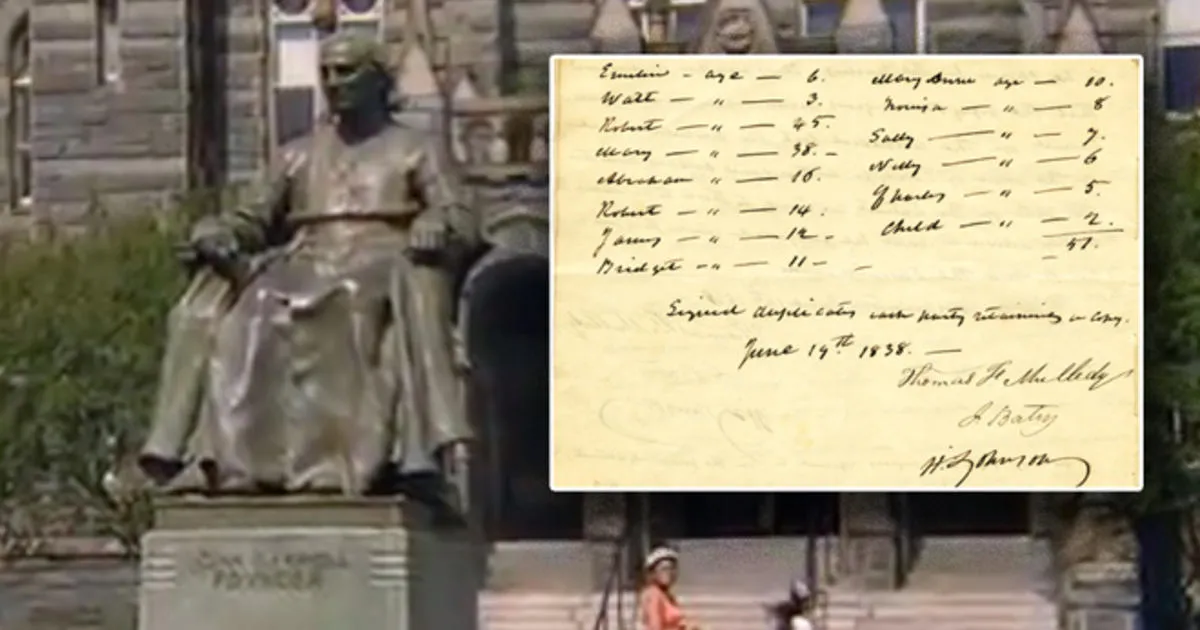 Emeline - age — 6.
Watt — " — 3.
Robert — " — 45.
Mary — " — 38. -
Abraham " — 16.
Robert - " — 14.
James - " — 12 -
Bridget - " — 11 - -
Mary Anne age — 10.
Louisa — " — 8
Sally — " — 7.
Nelly — " — 6
Charles — " — 5.
Child — " — 2.
51.
Signed duplicates each party retaining a copy.
June 19th 1838. —
Thomas F. Mulledy
J. Batey
H. Johnson
JOHN CARROLL
FOUNDER